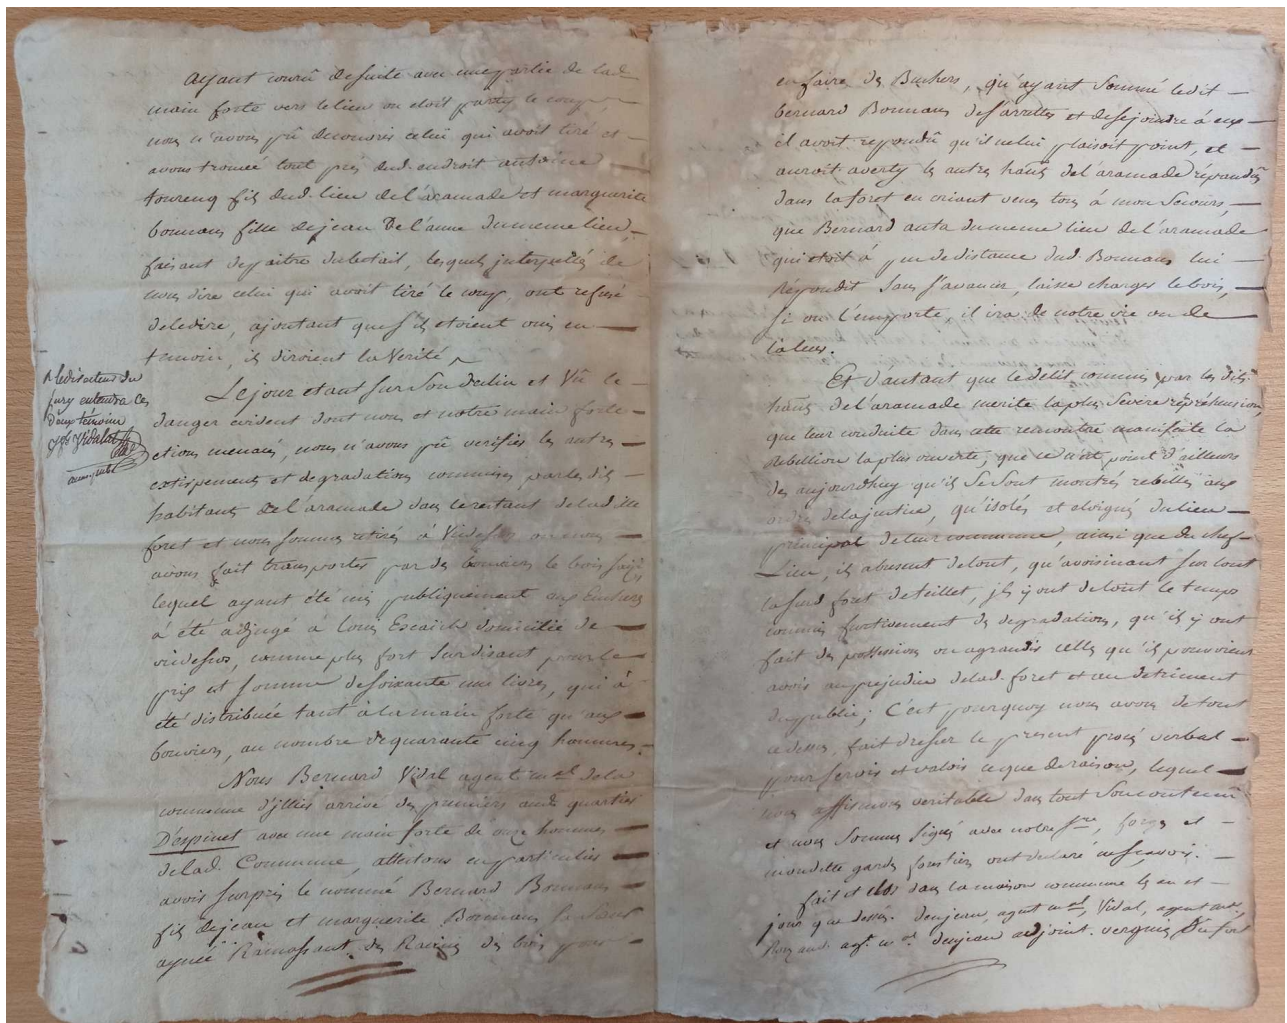 Ayant couru desuite avec une partie de lad.
main forte vers le lieu ou etoit party le coup,
nous n'avons pû decouvrir celui qui avoit tiré et
avons trouvé tout près dud. androit antoine
toureng fils dud. lieu de l'aramade et marguerite
bonnans fille de jean De l'anne du meme lieu,
faisant depaitre du betail, lesquels interpellés de
nous dire celui qui avoit tiré le coup, ont refusé
de le dire, ajoutant que s'ils etoient ouis en
temoin, ils diroient la Verité
le directeur du
jury entendra ces
deux témoins
Vidalot
Le jour etant sur son declin et Vû le
danger evident dont nous et notre main forte
etions menacés, nous n'avons pû verifier les autres
extirpements et degradations commises par lesdits
habitants de l'aramade dans le restant de ladite
foret et nous sommes retirés à Videssos ou nous
avons fait transporter par des bouviers le bois saisi
lequel ayant été mis publiquement aux Encheres
à été adjugé à louis Escaich domicilié de
videssos, comme plus fort surdisant pour le
prix et somme de soixante une livres, qui à
été distribuée tant à la main forte qu'aux
bouviers, au nombre de quarante cinq hommes.
Nous Bernard Vidal agent mal de la
commune d'illier arrivé des premiers aud. quartier
D'espinet avec une main forte de onze hommes
de lad. Commune, attestons en particulier
avoir surpris le nommé Bernard Bonnans
fils de jean et marguerite Bonnans sa sœur
aynée Ramassant des Racines de bois pour
en faire des Buchers, qu'ayant sommé ledit
bernard Bonnans de s'arretter et de se joindre à eux
il avoit repondû qu'il ne lui plaisoit point, et
auroit averty les autres hants de l'aramade répandus
dans la foret en criant venes tous à mon Secours,
que Bernard auta du meme lieu de l'aramade
qui etoit à peu de distance dud. Bonnans lui
répondit sans s'avancer, laisse charger le bois,
si on l'emporte, il ira de notre vie ou de
la leur.
Et d'autant que le delit commis par les dits
hants de l'aramade merite la plus severe répréhension,
que leur conduite dans cette rencontre manifeste la
Rebellion la plus ouverte, que ce n'est point d'ailleurs
des aujourdhuy qu'ils se sont montrés rebelles aux
ordres de la justice, qu'isolés et eloignés du lieu
principal de leur commune, ainsi que du chef
Lieu, ils abusent de tout, qu'avoisinant sur tout
la susd. foret de teillet, ils y ont de tout le temps
commis furtivement des degradations, qu'ils y ont
fait des possessions ou agrandis celles qu'ils pouvoient
avoir au prejudice de lad. foret et au detriment
du public; C'est pourquoy nous avons de tout
ce dessus, fait dresser le present procés verbal
pour servir et valoir ce que de raison, lequel
nous affirmons veritable dans tout son contenu
et nous sommes signés avec notre sre, et
garde forestier ont declaré ne scavoir.
fait et clos dans la maison commune les an et
jour que dessus. Denjean, agent mal, Vidal, agent mal,
agt. mal denjean adjoint. vergnies